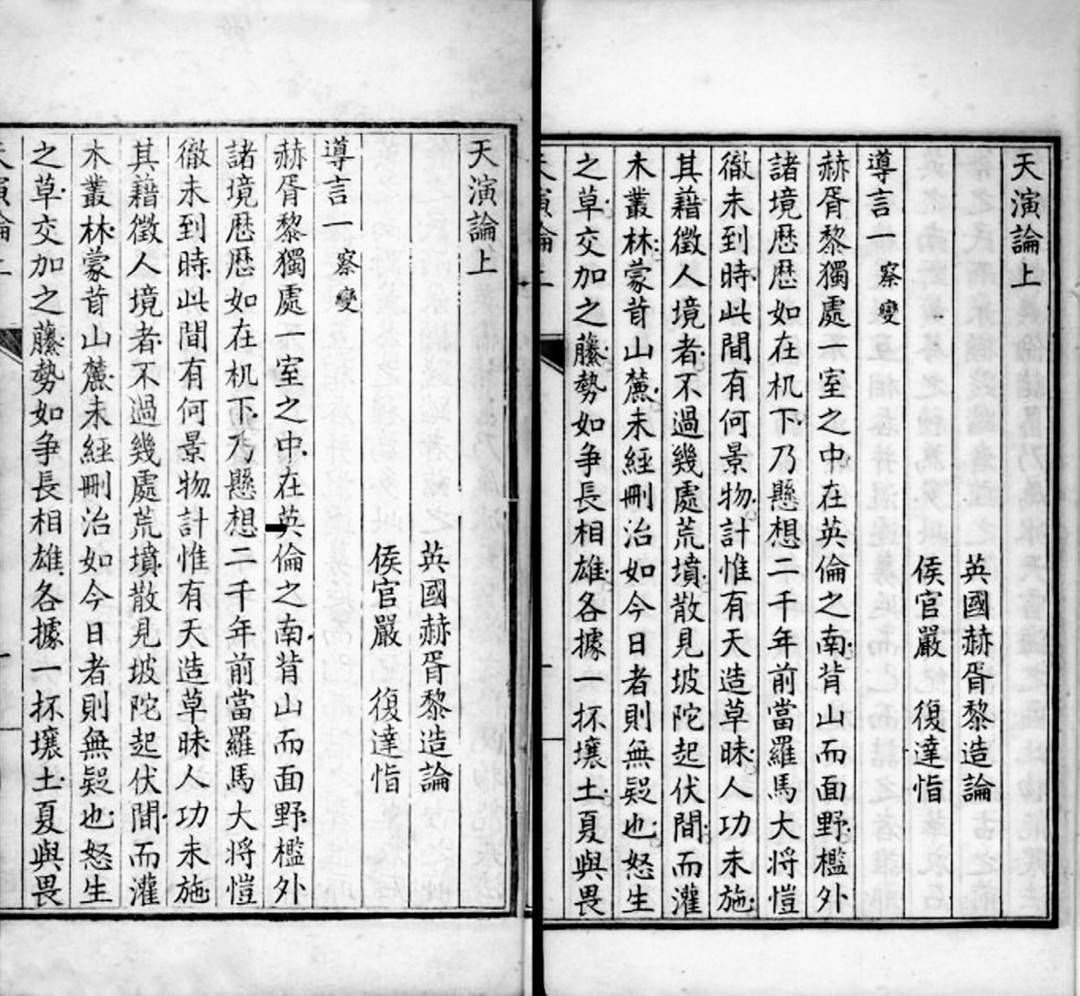 天演論上
英國赫胥黎造論
侯官嚴 復達恉
導言一 察變
赫胥黎獨處一室之中在英倫之南背山而面野檻外
諸境歷歷如在机下乃懸想二千年前當羅馬大將愷
徹未到時此間有何景物計惟有天造草昧人功未施
其藉徵人境者不過幾處荒墳散見坡陀起伏間而灌
木叢林蒙茸山麓未經刪治如今日者則無疑也怒生
之草交加之藤勢如爭長相雄各據一抔壤土夏與畏
天演論上
天演論上
英國赫胥黎造論
侯官嚴 復達恉
導言一 察變
赫胥黎獨處一室之中在英倫之南背山而面野檻外
諸境歷歷如在机下乃懸想二千年前當羅馬大將愷
徹未到時此間有何景物計惟有天造草昧人功未施
其藉徵人境者不過幾處荒墳散見坡陀起伏間而灌
木叢林蒙茸山麓未經刪治如今日者則無疑也怒生
之草交加之藤勢如爭長相雄各據一抔壤土夏與畏
天演論上